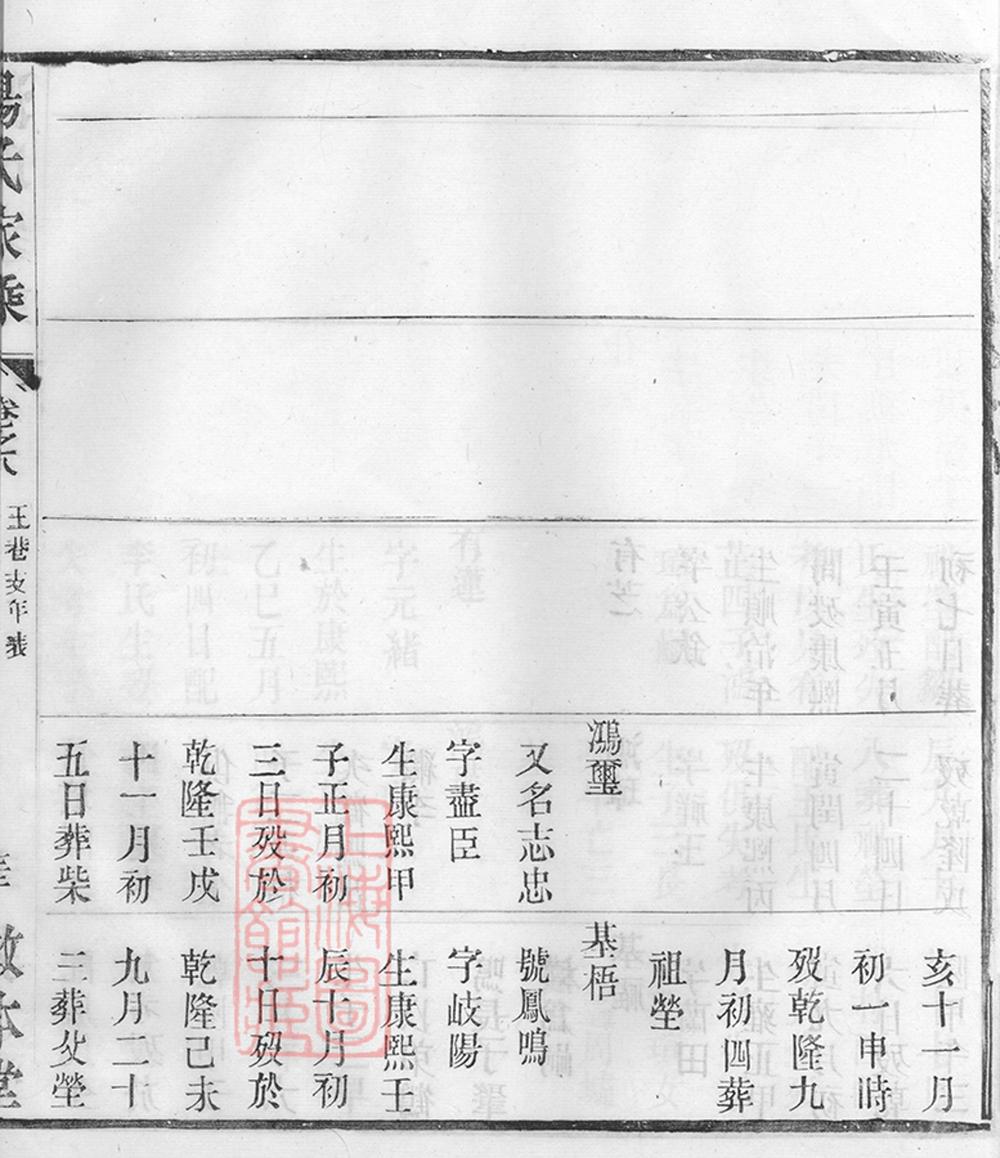 亥十一月
初一申時
歿乾隆九
月初四葬
祖塋
鴻璽
又名志忠
字藎臣
生康熙甲
子正月初
三日歿於
乾隆壬戌
十一月初
五日葬柴
基梧
號鳳鳴
字岐陽
生康熙壬
辰十月初
十日歿於
乾隆己未
九月二十
三葬父塋
楊氏家乘
卷之六
王巷支年表
敦本堂
上海圖書館藏